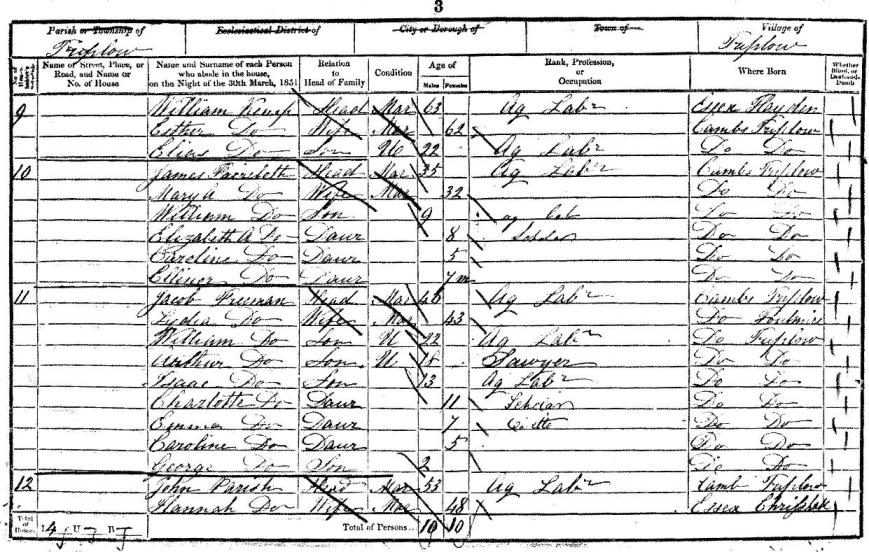 3
Parish or Township of Ecclesiastical District of City or Borough of Town of Village of
Triplow Triplow
Name of Street, Place, or Road, and Name or No. of House
Name and Surname of each Person who abode in the house, on the Night of the 30th March, 1851
Relation to Head of Family
Condition
Age of
Males Females
Rank, Profession, or Occupation
Where Born
Whether Blind, or Deaf-and-Dumb
9 William Head Mar 63 Ag Labr Essex
Esther Do Wife Mar 62 Cambs Triplow
Elias Do Son U 22 Ag Labr Do Do
10 James Head Mar 35 Ag Labr Cambs Triplow
Mary A Do Wife Mar 32 Do Do
William Do Son 9 ag Lab Do Do
Elizabeth A Do Daur 8 Do Do
Caroline Do Daur 5 Do Do
Ellinor Do Daur 7m Do Do
11 Jacob Freeman Head Mar 46 Ag Labr Cambs Triplow
Lydia Do Wife Mar 43 Do Foulmire
William Do Son U 22 Ag Labr Do Triplow
Arthur Do Son U 18 Sawyer Do Do
Isaac Do Son 13 Ag Labr Do Do
Charlotte Do Daur 11 Do Do
Emma Do Daur 7 Do Do
Caroline Do Daur 5 Do Do
George Do Son 2 Do Do
12 John Parish Head Mar 53 Ag Labr Camb Triplow
Hannah Do Wife Mar 48 Essex
Total of Houses I 4 U B Total of Persons.. 10 10